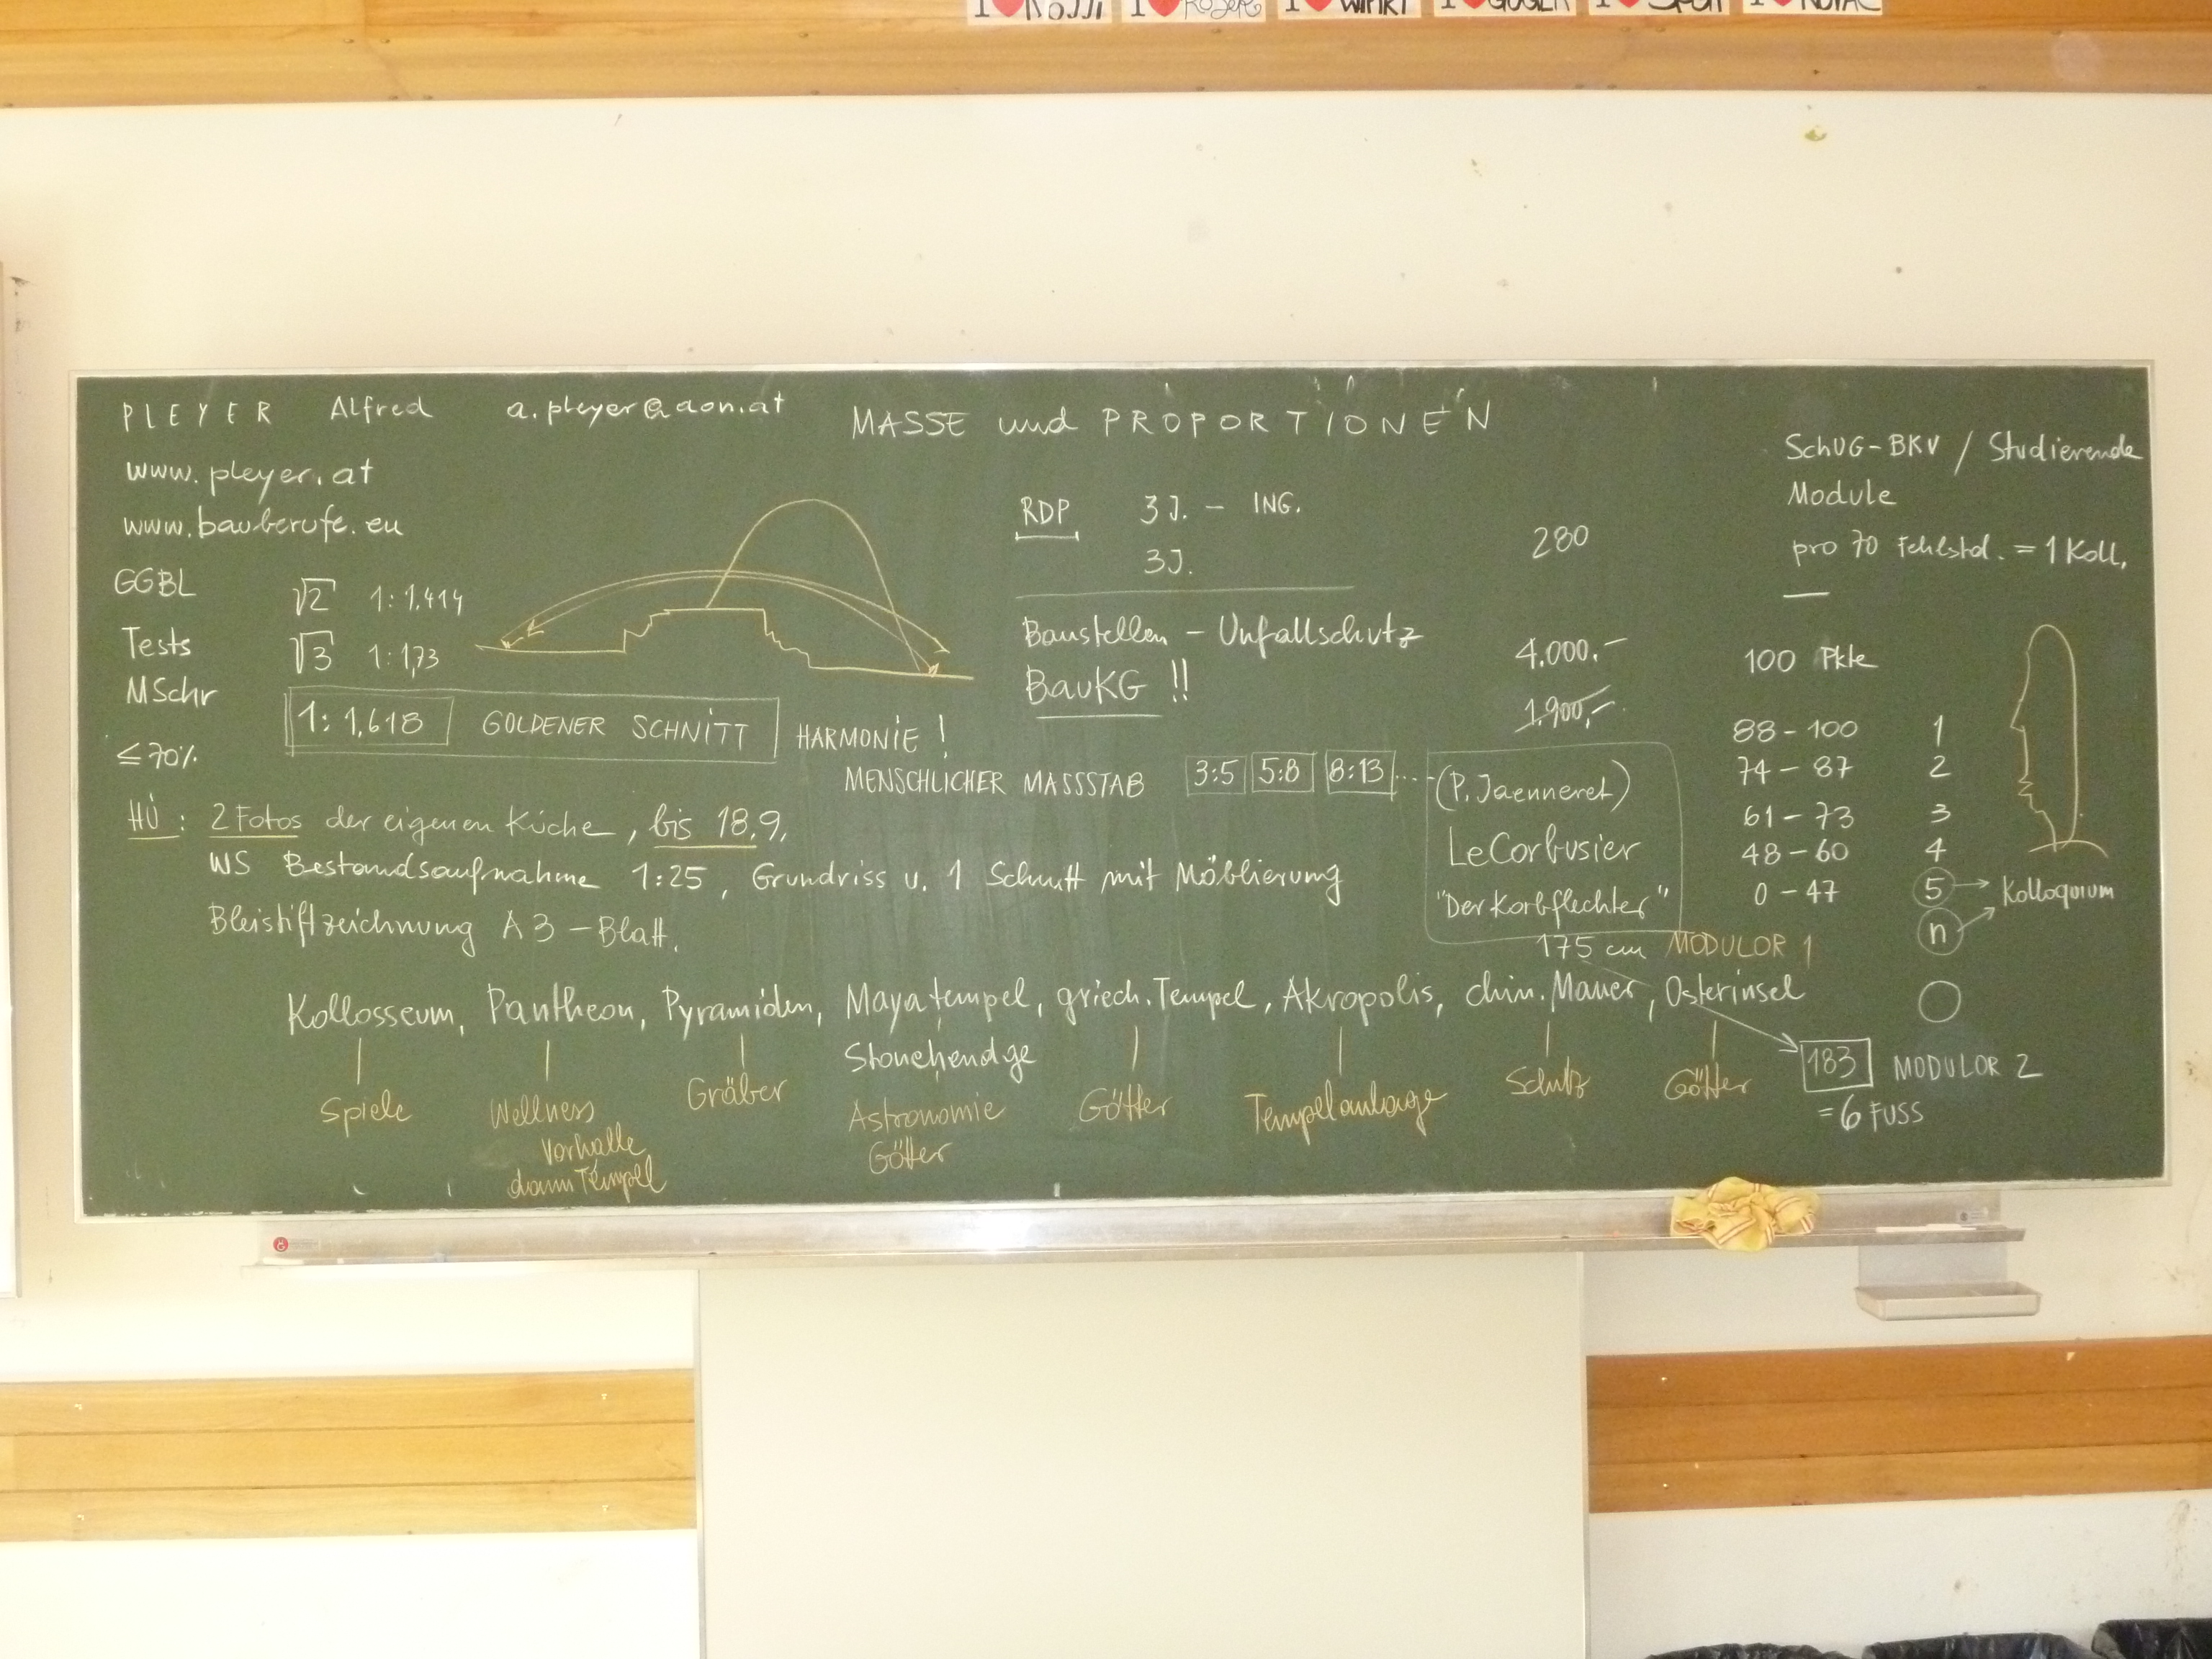 PLEYER Alfred a.pleyer@aon.at
www.pleyer.at
www.bauberufe.eu
GGBL
Tests
MSchr
≤70%
√2 1:1,414
√3 1:1,73
1:1,618 GOLDENER SCHNITT HARMONIE!
MASSE und PROPORTIONEN
RDP 3J. - ING.
3J.
Baustellen - Unfallschutz
BauKG !!
280
4.000.-
1.900,-
MENSCHLICHER MASSSTAB 3:5 5:8 8:13 ...
(P. Jaenneret)
LeCorbusier
"Der Korbflechter"
175 cm MODULOR 1
SchUG-BKV / Studierende
Module
pro 70 Fehlstd. = 1 Koll.
100 Pkte
88-100 1
74-87 2
61-73 3
48-60 4
0-47 5 Kolloquium
n
HÜ: 2 Fotos der eigenen Küche, bis 18.9,
WS Bestandsaufnahme 1:25, Grundriss u. 1 Schnitt mit Möblierung
Bleistiftzeichnung A3-Blatt.
Kollosseum, Pantheon, Pyramiden, Mayatempel, griech. Tempel, Akropolis, chin. Mauer, Osterinsel
Stonehendge
Spiele
Wellness
Vorhalle
dann Tempel
Gräber
Astronomie
Götter
Götter
Tempelanlage
Schutz
Götter
183 MODULOR 2
= 6 FUSS